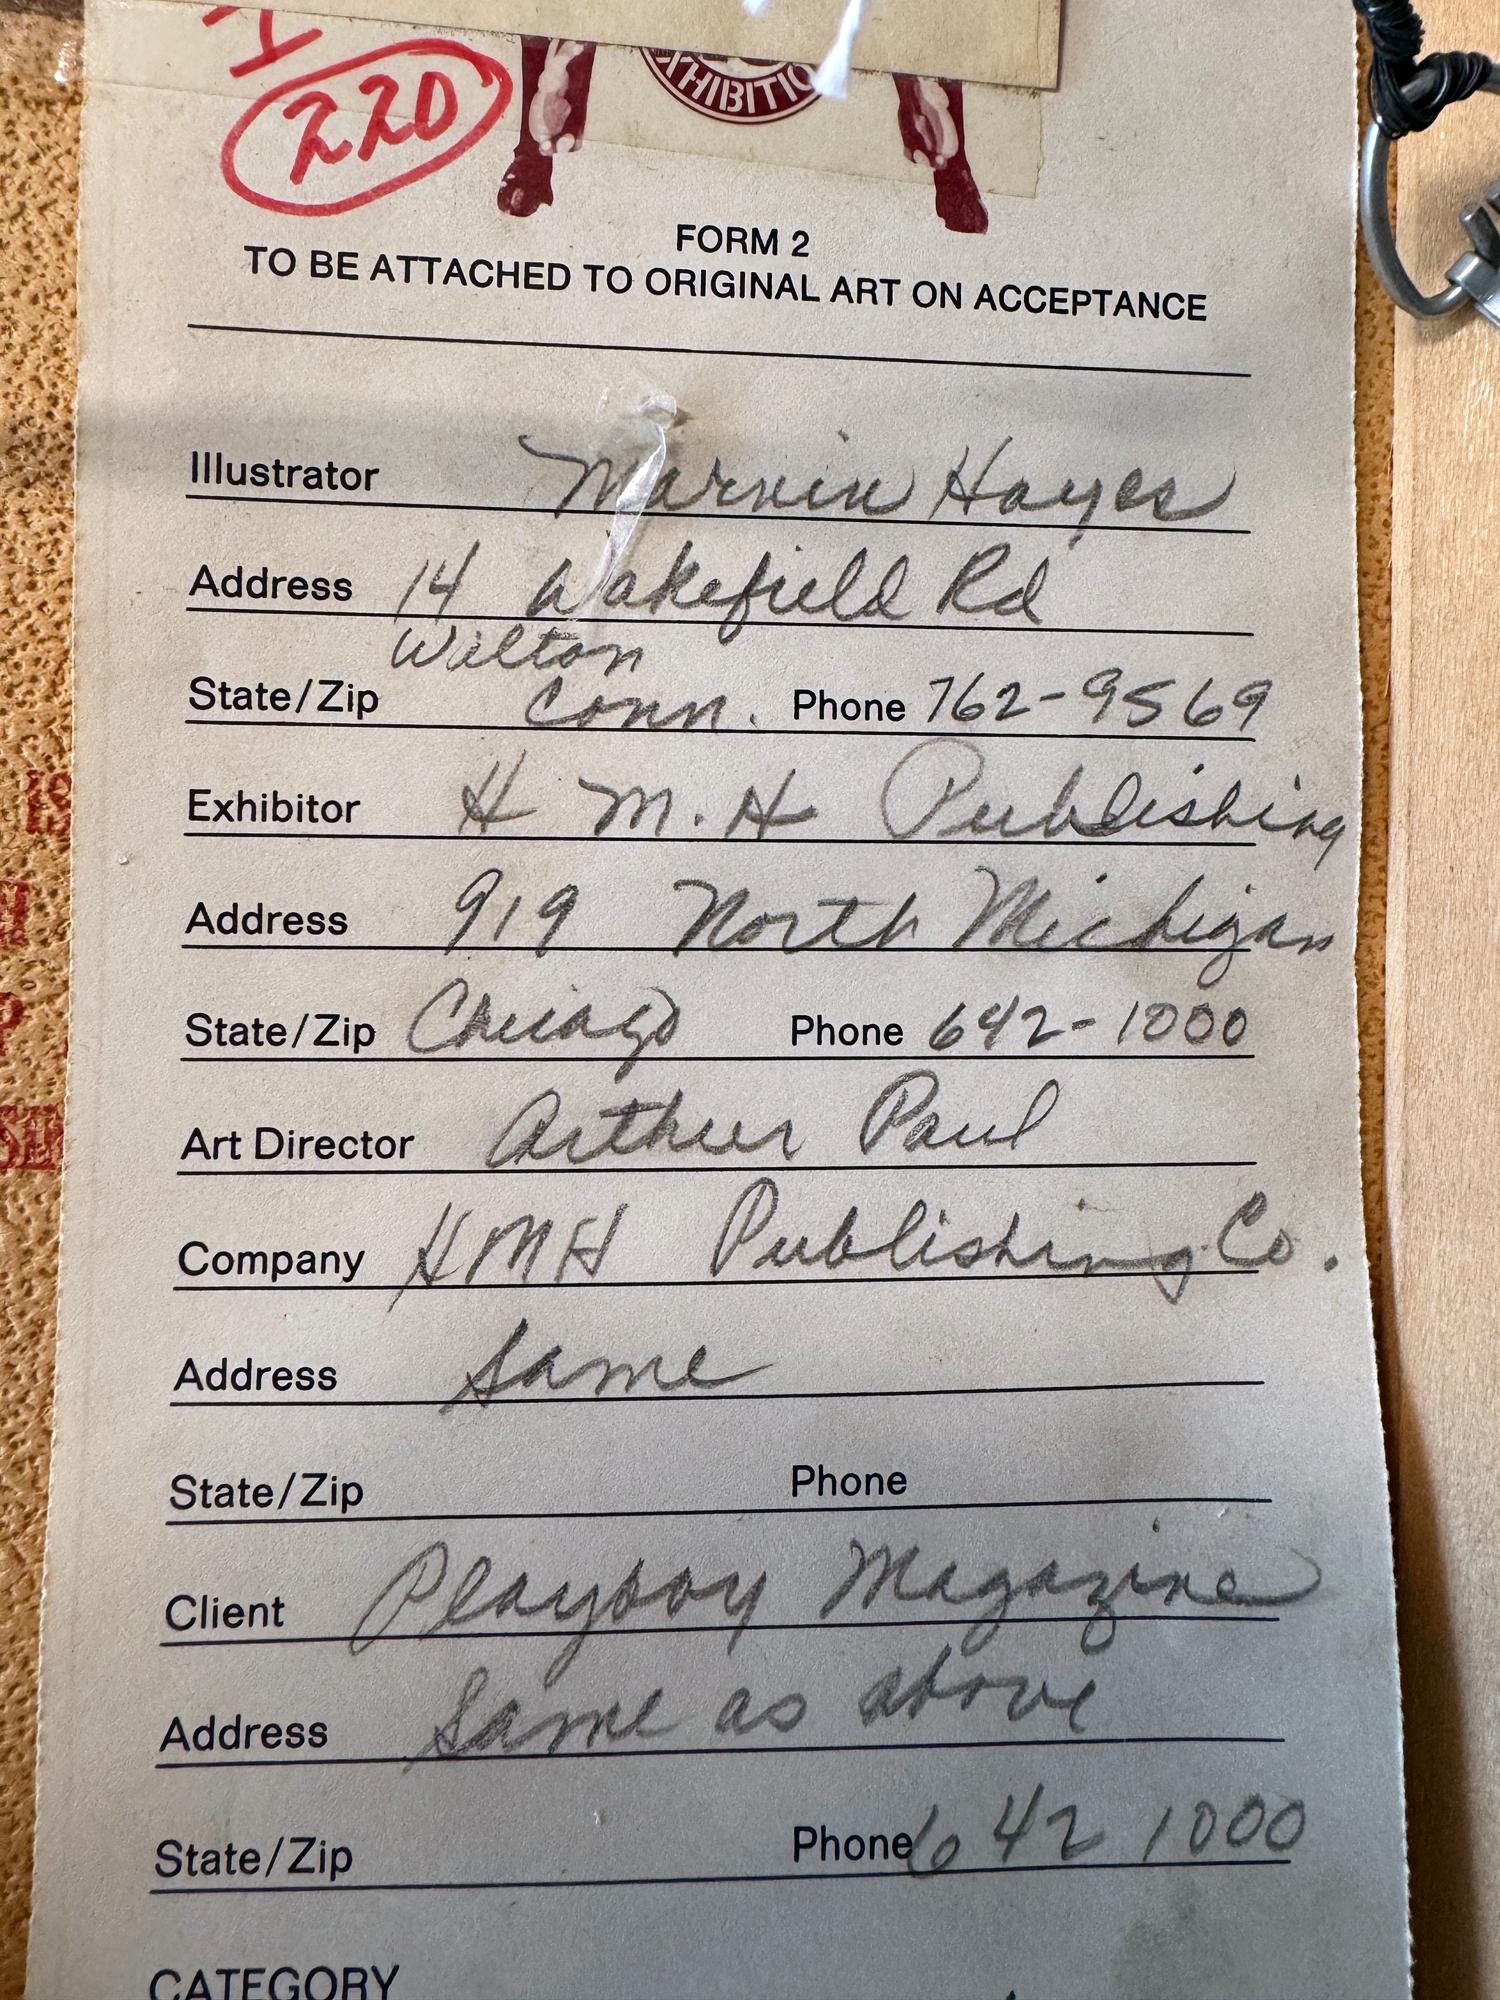 220
EXHIBITIO
FORM 2
TO BE ATTACHED TO ORIGINAL ART ON ACCEPTANCE
Illustrator Marvin Hayes
Address 14 Wakefield Rd
Wilton
State/Zip Conn. Phone 762-9569
Exhibitor H M. H Publishing
Address 919 North Michigan
State/Zip Chicago Phone 642-1000
Art Director Arthur Paul
Company HMH Publishing Co.
Address Same
State/Zip Phone
Client Playboy Magazine
Address Same as above
State/Zip Phone 642 1000
CATEGORY